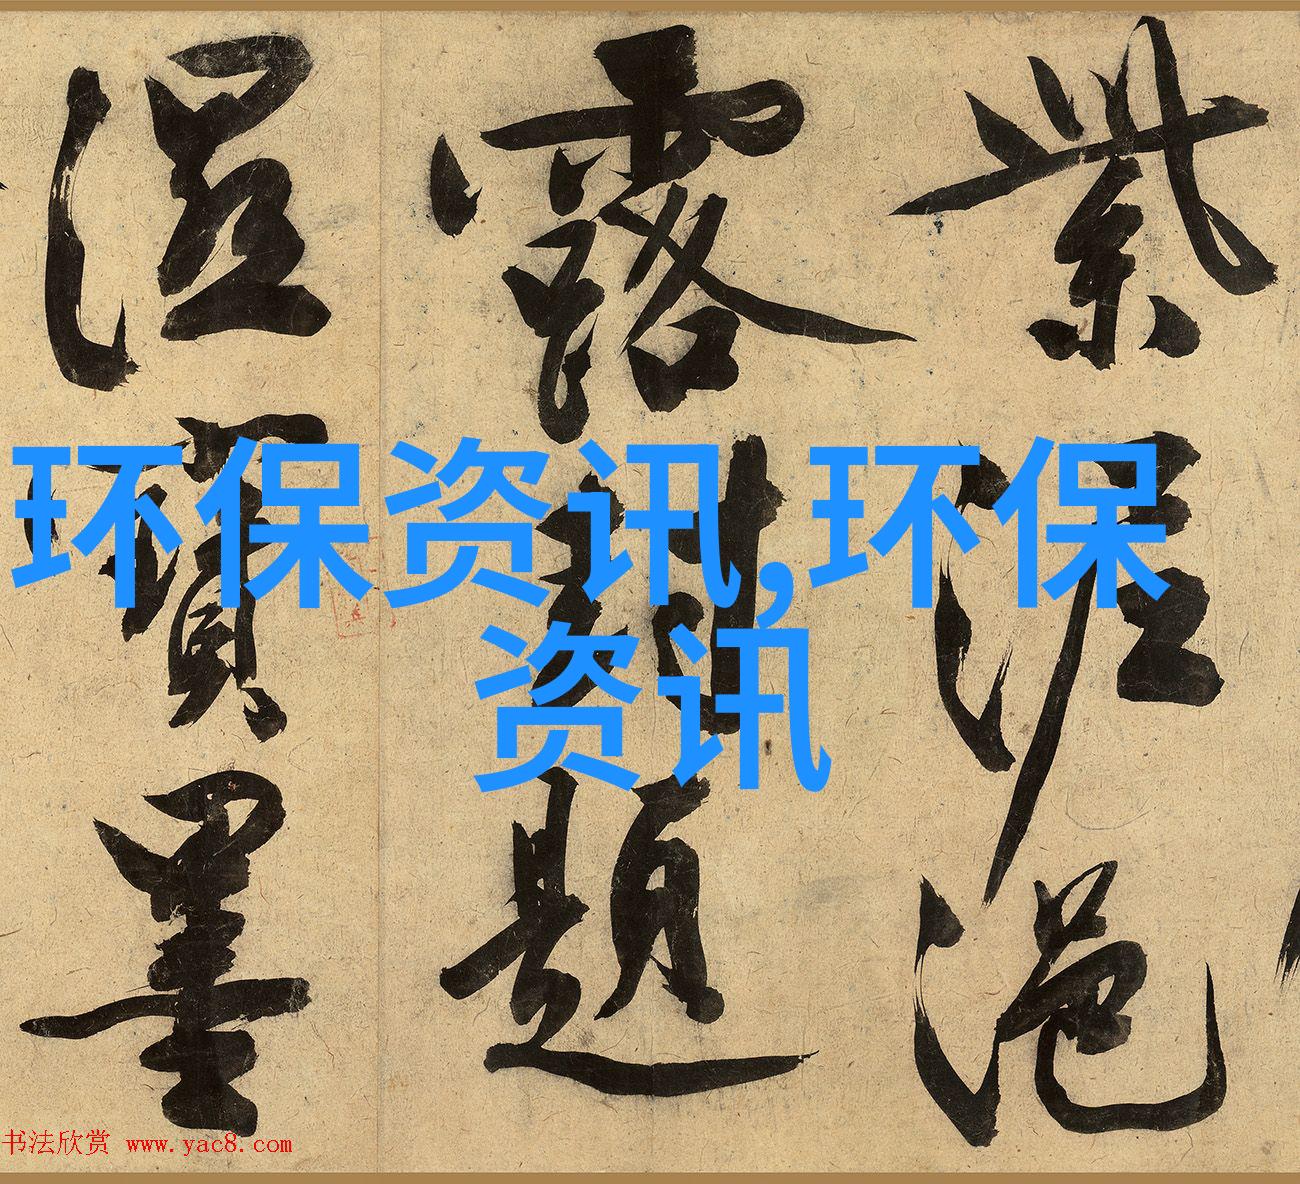 紫泥浥
露封題
濕寶墨
环保资讯,环保
资讯
书法欣赏 www.yac8.com